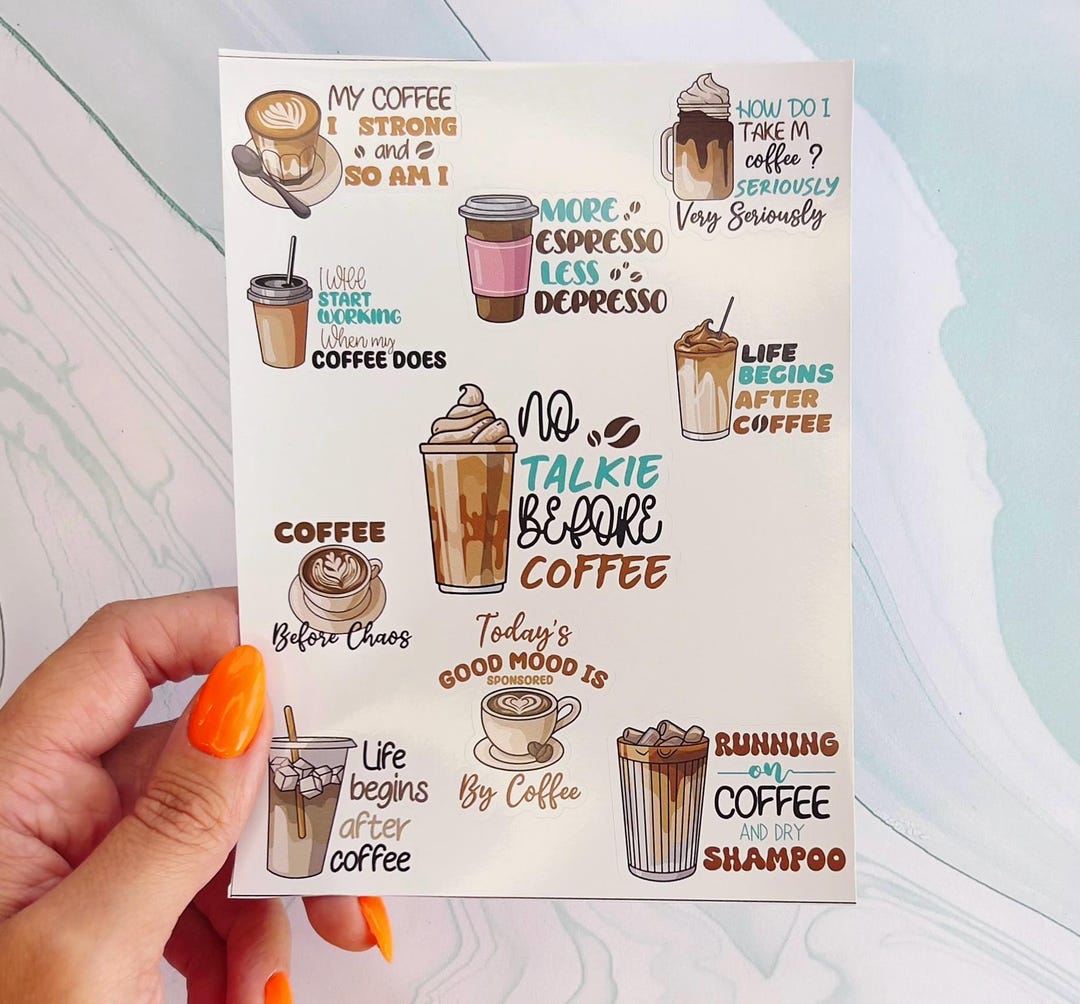 MY COFFEE
I STRONG
and
SO AM I
HOW DO I
TAKE M
coffee ?
SERIOUSLY
Very Seriously
MORE
ESPRESSO
LESS
DEPRESSO
I Will
START
WORKING
When my
COFFEE DOES
LIFE
BEGINS
AFTER
COFFEE
NO
TALKIE
BEFORE
COFFEE
COFFEE
Before Chaos
Today's
GOOD MOOD IS
SPONSORED
By Coffee
Life
begins
after
coffee
RUNNING
on
COFFEE
AND DRY
SHAMPOO